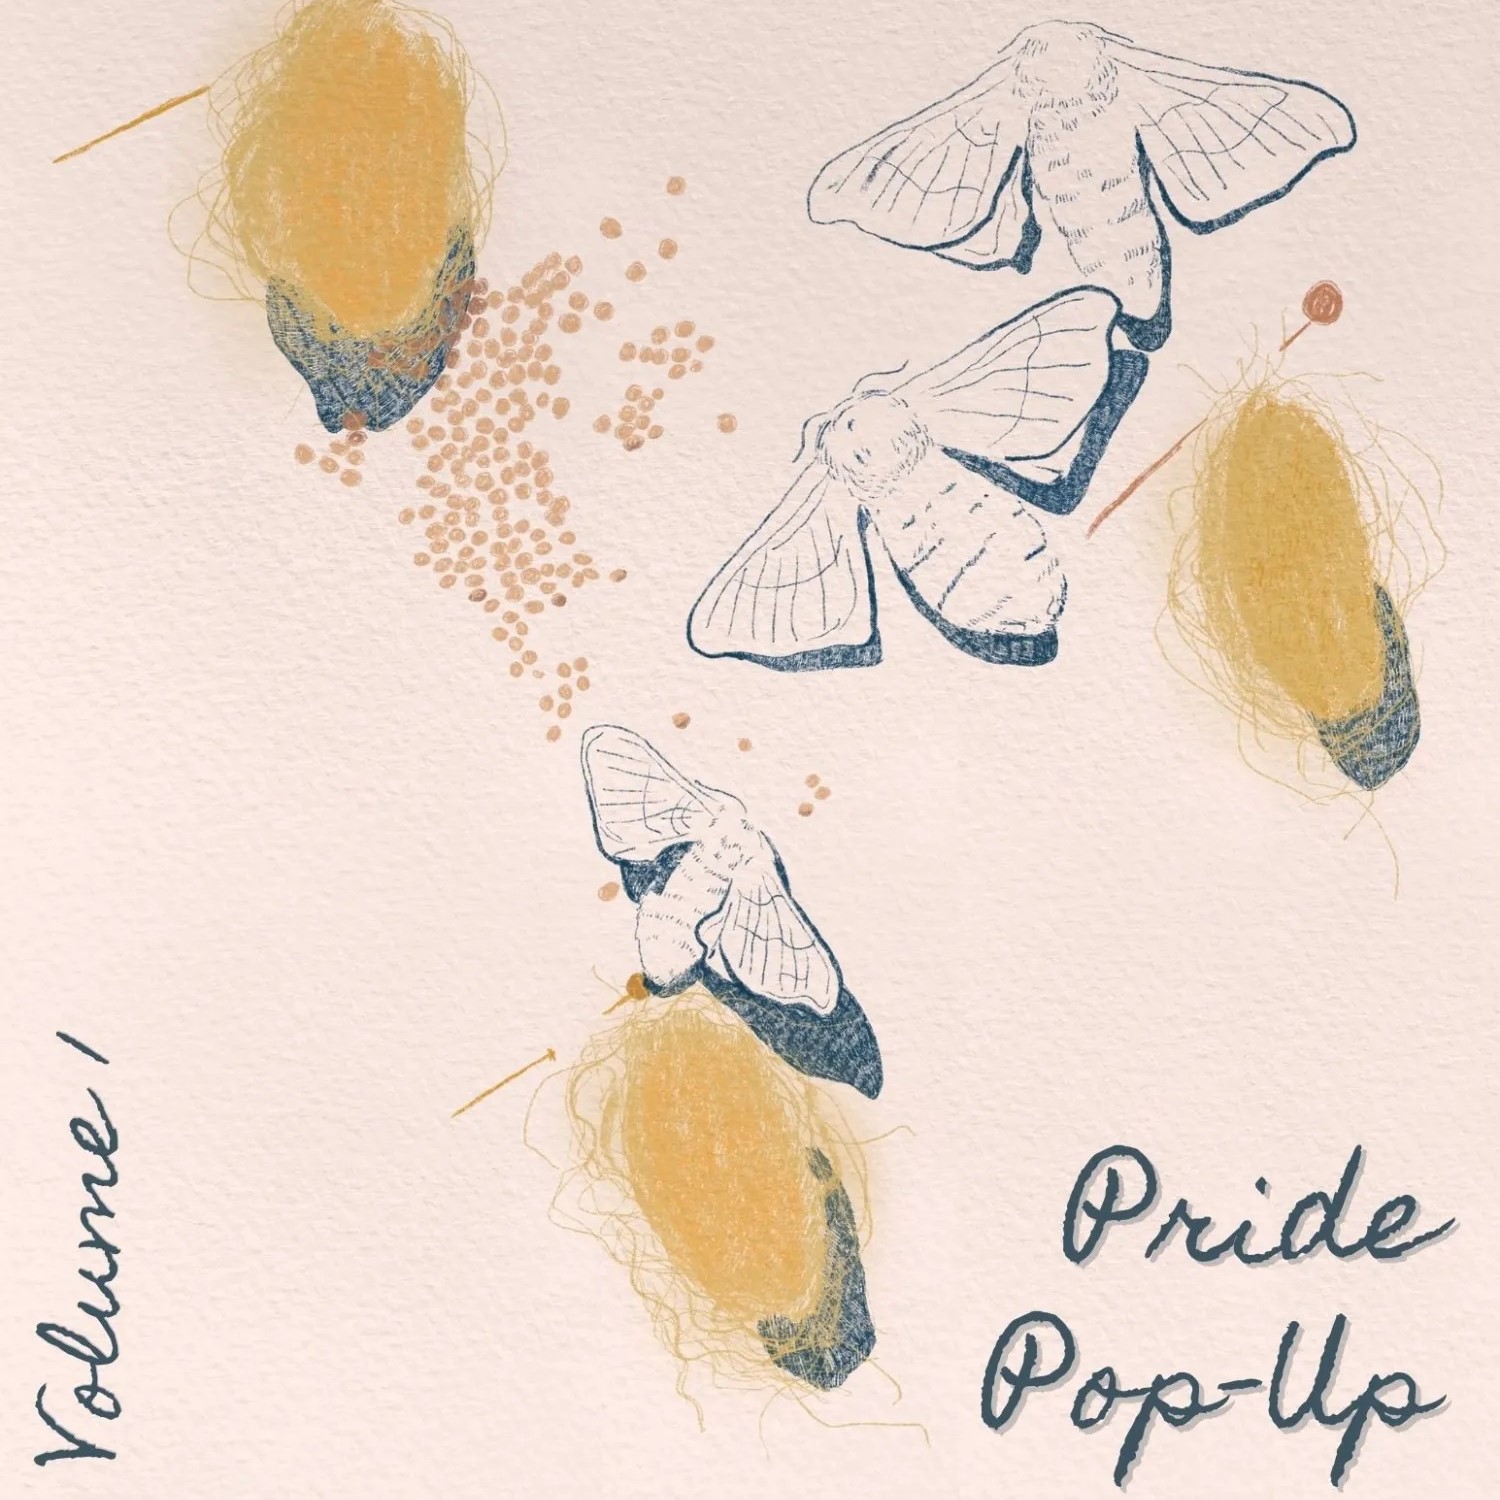 Volume 1
Pride
Pop-Up